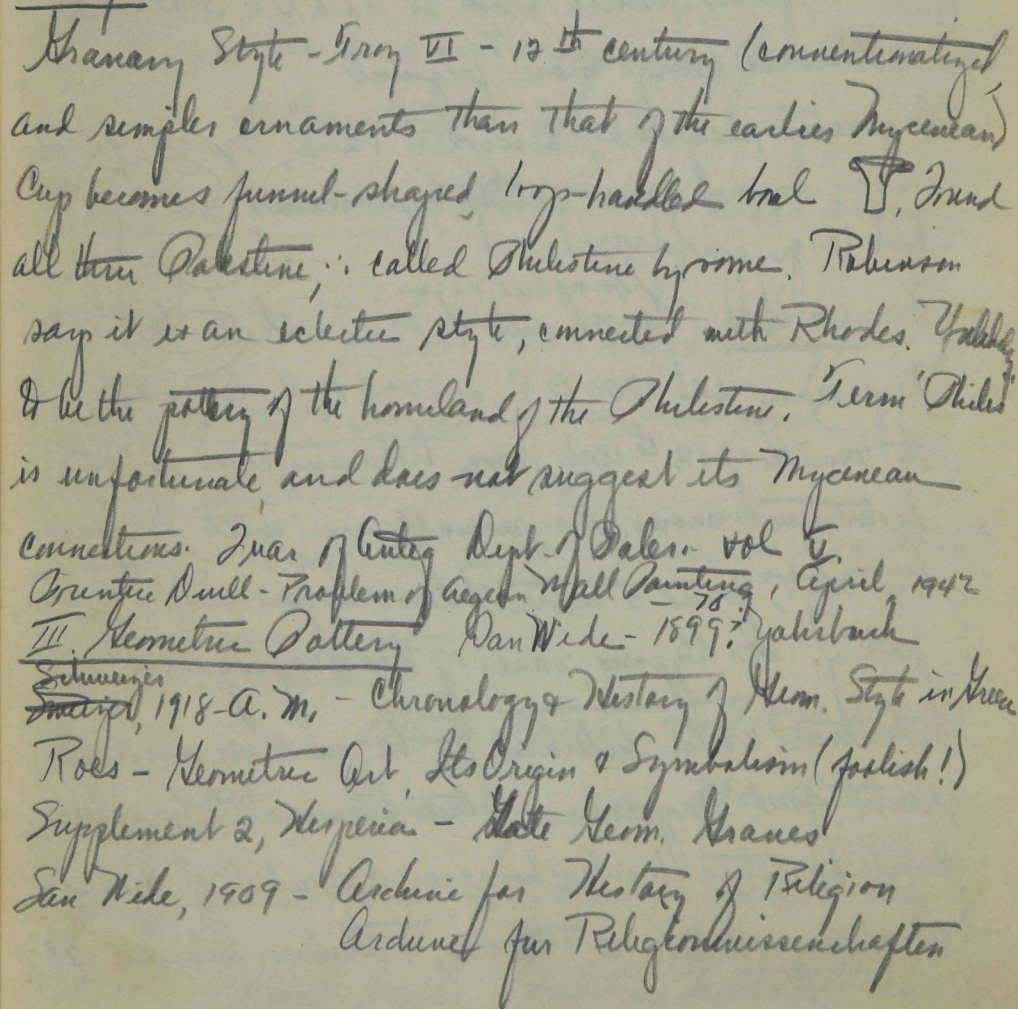 Granary Style - Troy VI - 12th century (conventionalized,
and simpler ornaments than that of the earlier Mycenean)
Cup becomes funnel-shaped, loop-handled bowl. Found
all thru Palestine, ∴ called Philistine by some. Robinson
says it is an eclectic style, connected with Rhodes. Probably
to be the pottery of the homeland of the Philistine. Term 'Philis'
is unfortunate, and does not suggest its Mycenean
connections. Quar of Antiq Dept. of Pales. vol V.
Prentice Duell - Problem of Aegean Wall Painting, April, 1942
III. Geometric Pottery Dan Wide - 1899? Jahrbuch
Schweizer
1918 - A.M. - Chronology & History of Geom. Style in Greece
Roes - Geometric Art, Its Origin & Symbolism (foolish!)
Supplement 2, Hesperia - Late Geom. Graves
San Wide, 1909 - Archive for History of Religion
Archives fur Religionwissenschaften